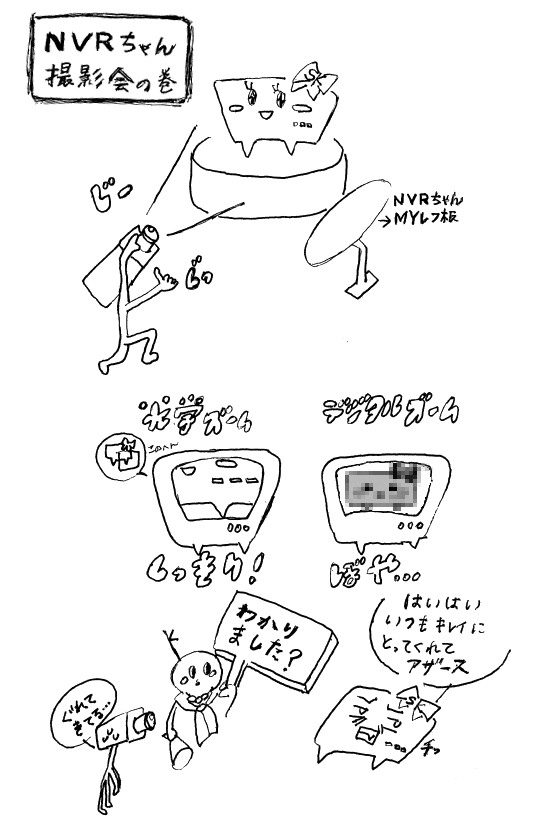 NVRちゃん
撮影会の巻
ジー
NVRちゃん
→MYレフ板
ビシッ
光学ズーム
デジタルズーム
このへん
くっきり!
ぼや…
わかり
ました?
はいはい
いつもキレイに
とってくれて
アザース
ぐれて
きてる…
チッ